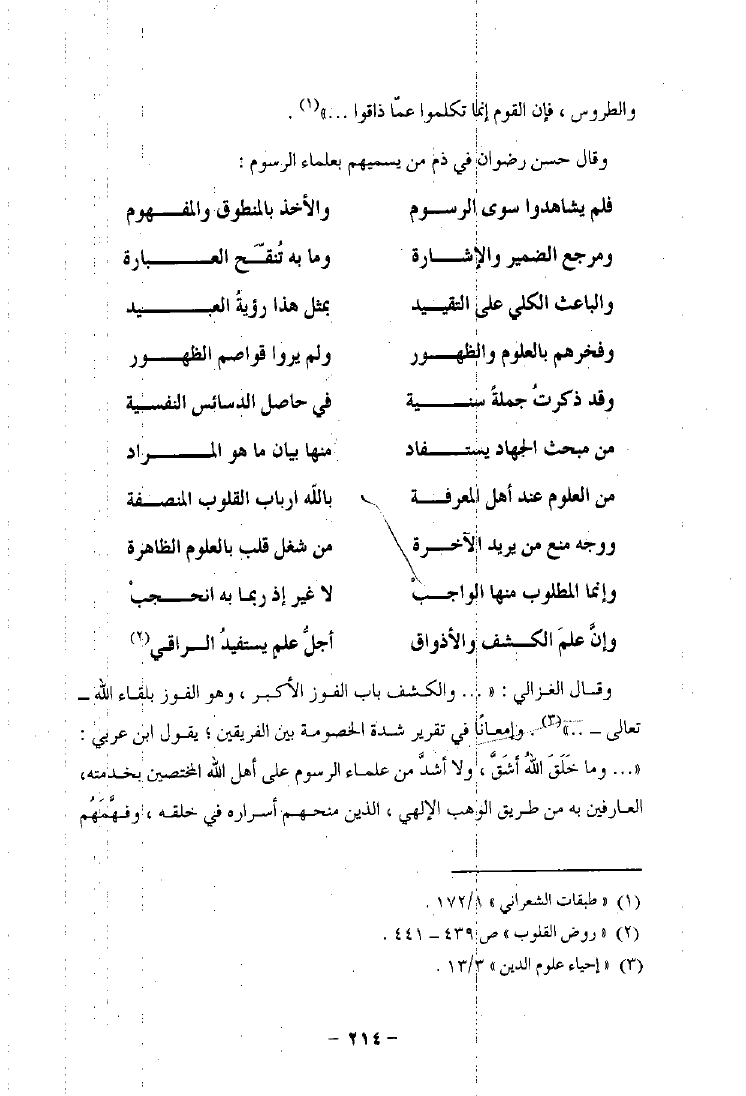 والطروس ، فإن القوم إنما تكلموا عمّا ذاقوا ...»(١) .
وقال حسن رضوان في ذم من يسميهم بعلماء الرسوم :
فلم يشاهدوا سوى الرسوم والأخذ بالمنطوق والمفهوم
ومرجع الضمير والإشارة وما به تُنقَّح العبارة
والباعث الكلي على التقييد بمثل هذا رؤيةُ العبيد
وفخرهم بالعلوم والظهور ولم يروا قواصم الظهور
وقد ذكرتُ جملةً سنية في حاصل الدسائس النفسية
من مبحث الجهاد يستفاد منها بيان ما هو المراد
من العلوم عند أهل المعرفة بالله ارباب القلوب المنصفة
ووجه منع من يريد الآخرة من شغل قلب بالعلوم الظاهرة
وإنما المطلوب منها الواجبْ لا غير إذ ربما به انحجبْ
وإنَّ علمَ الكشف والأذواق أجلُّ علمٍ يستفيدُ الراقي(٢)
وقال الغزالي : « ... والكشف باب الفوز الأكبر ، وهو الفوز بلقاء الله ـ
تعالى ـ ..»(٣) . وإمعانًا في تقرير شدة الخصومة بين الفريقين ؛ يقول ابن عربي :
«... وما خَلَقَ اللهُ أشَقَّ ، ولا أشدَّ من علماء الرسوم على أهل الله المختصين بخدمته،
العارفين به من طريق الوهب الإلهي ، الذين منحهم أسراره في خلقه ، وفهَّمَهُم
(١) « طبقات الشعراني » ١٧٢/١ .
(٢) « روض القلوب » ص ٤٣٩ – ٤٤١ .
(٣) « إحياء علوم الدين » ١٣/٣ .
– ٢١٤ –